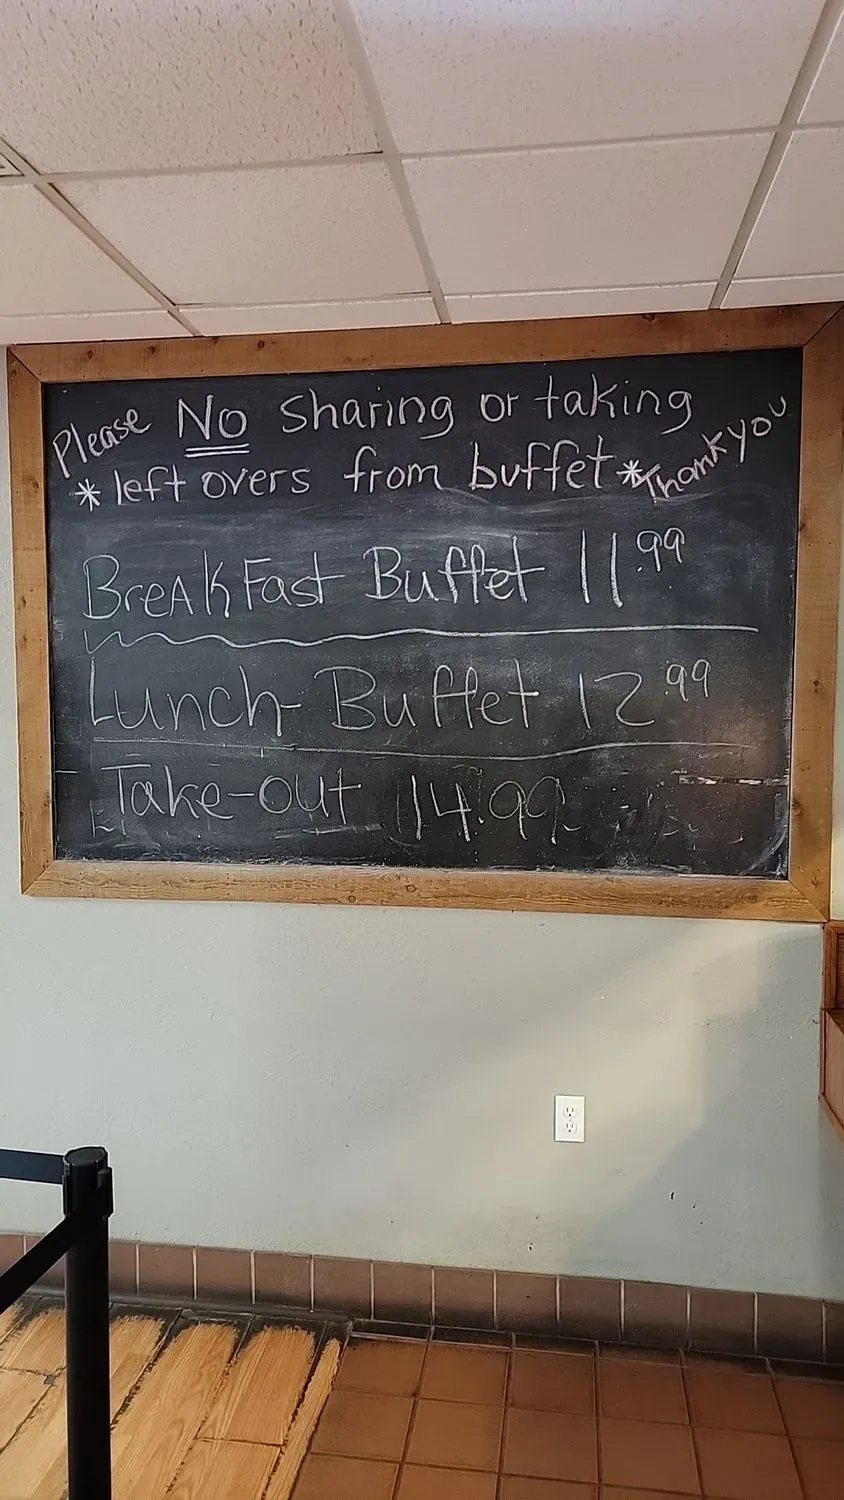 Please NO sharing or taking
* left overs from buffet * Thank you
BreAkFast Buffet 11.99
Lunch Buffet 12.99
Take-out 14.99